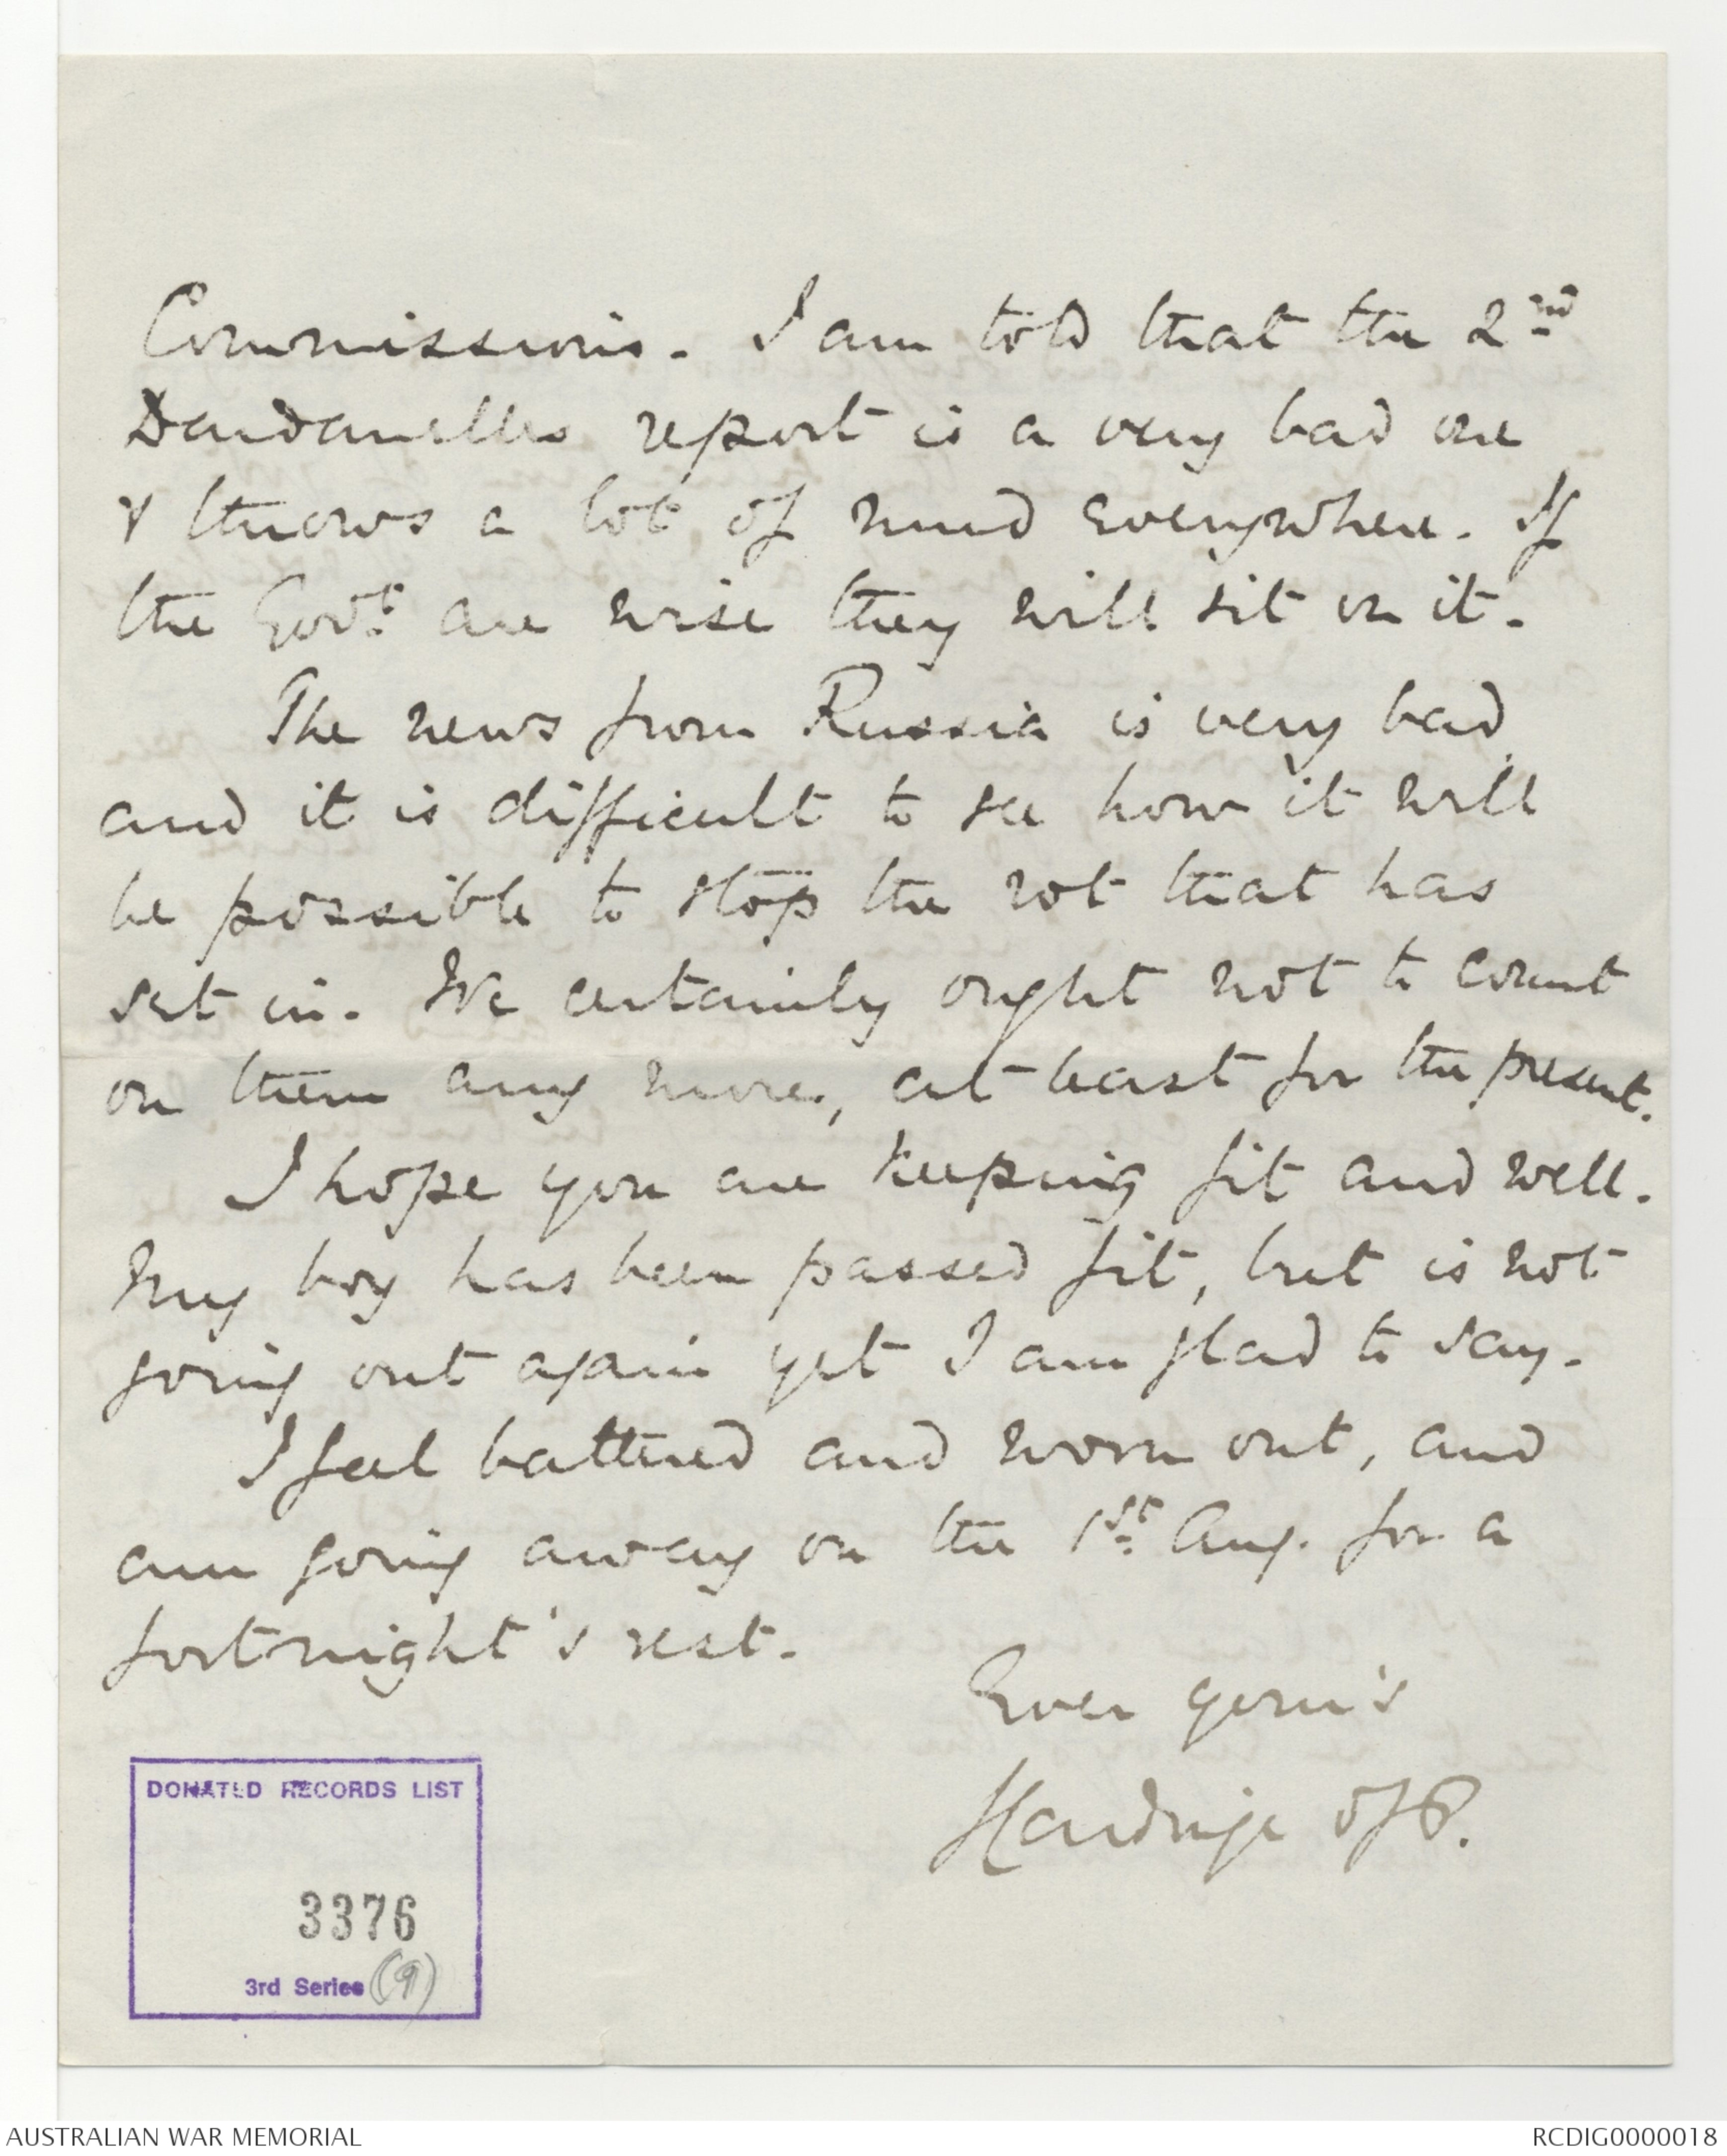 Commissions. I am told that the 2nd
Dardanelles report is a very bad one
& throws a lot of mud everywhere. If
the Govt. are wise they will sit on it.
The news from Russia is very bad
and it is difficult to see how it will
be possible to stop the rot that has
set in. We certainly ought not to count
on them any more, at least for the present.
I hope you are keeping fit and well.
My boy has been passed fit, but is not
going out again yet I am glad to say.
I feel battered and worn out, and
am going away on the 1st Aug. for a
fortnight's rest.
Ever your's
Hardinge of P.
DONATED RECORDS LIST
3376
3rd Series (9)
AUSTRALIAN WAR MEMORIAL
RCDIG0000018